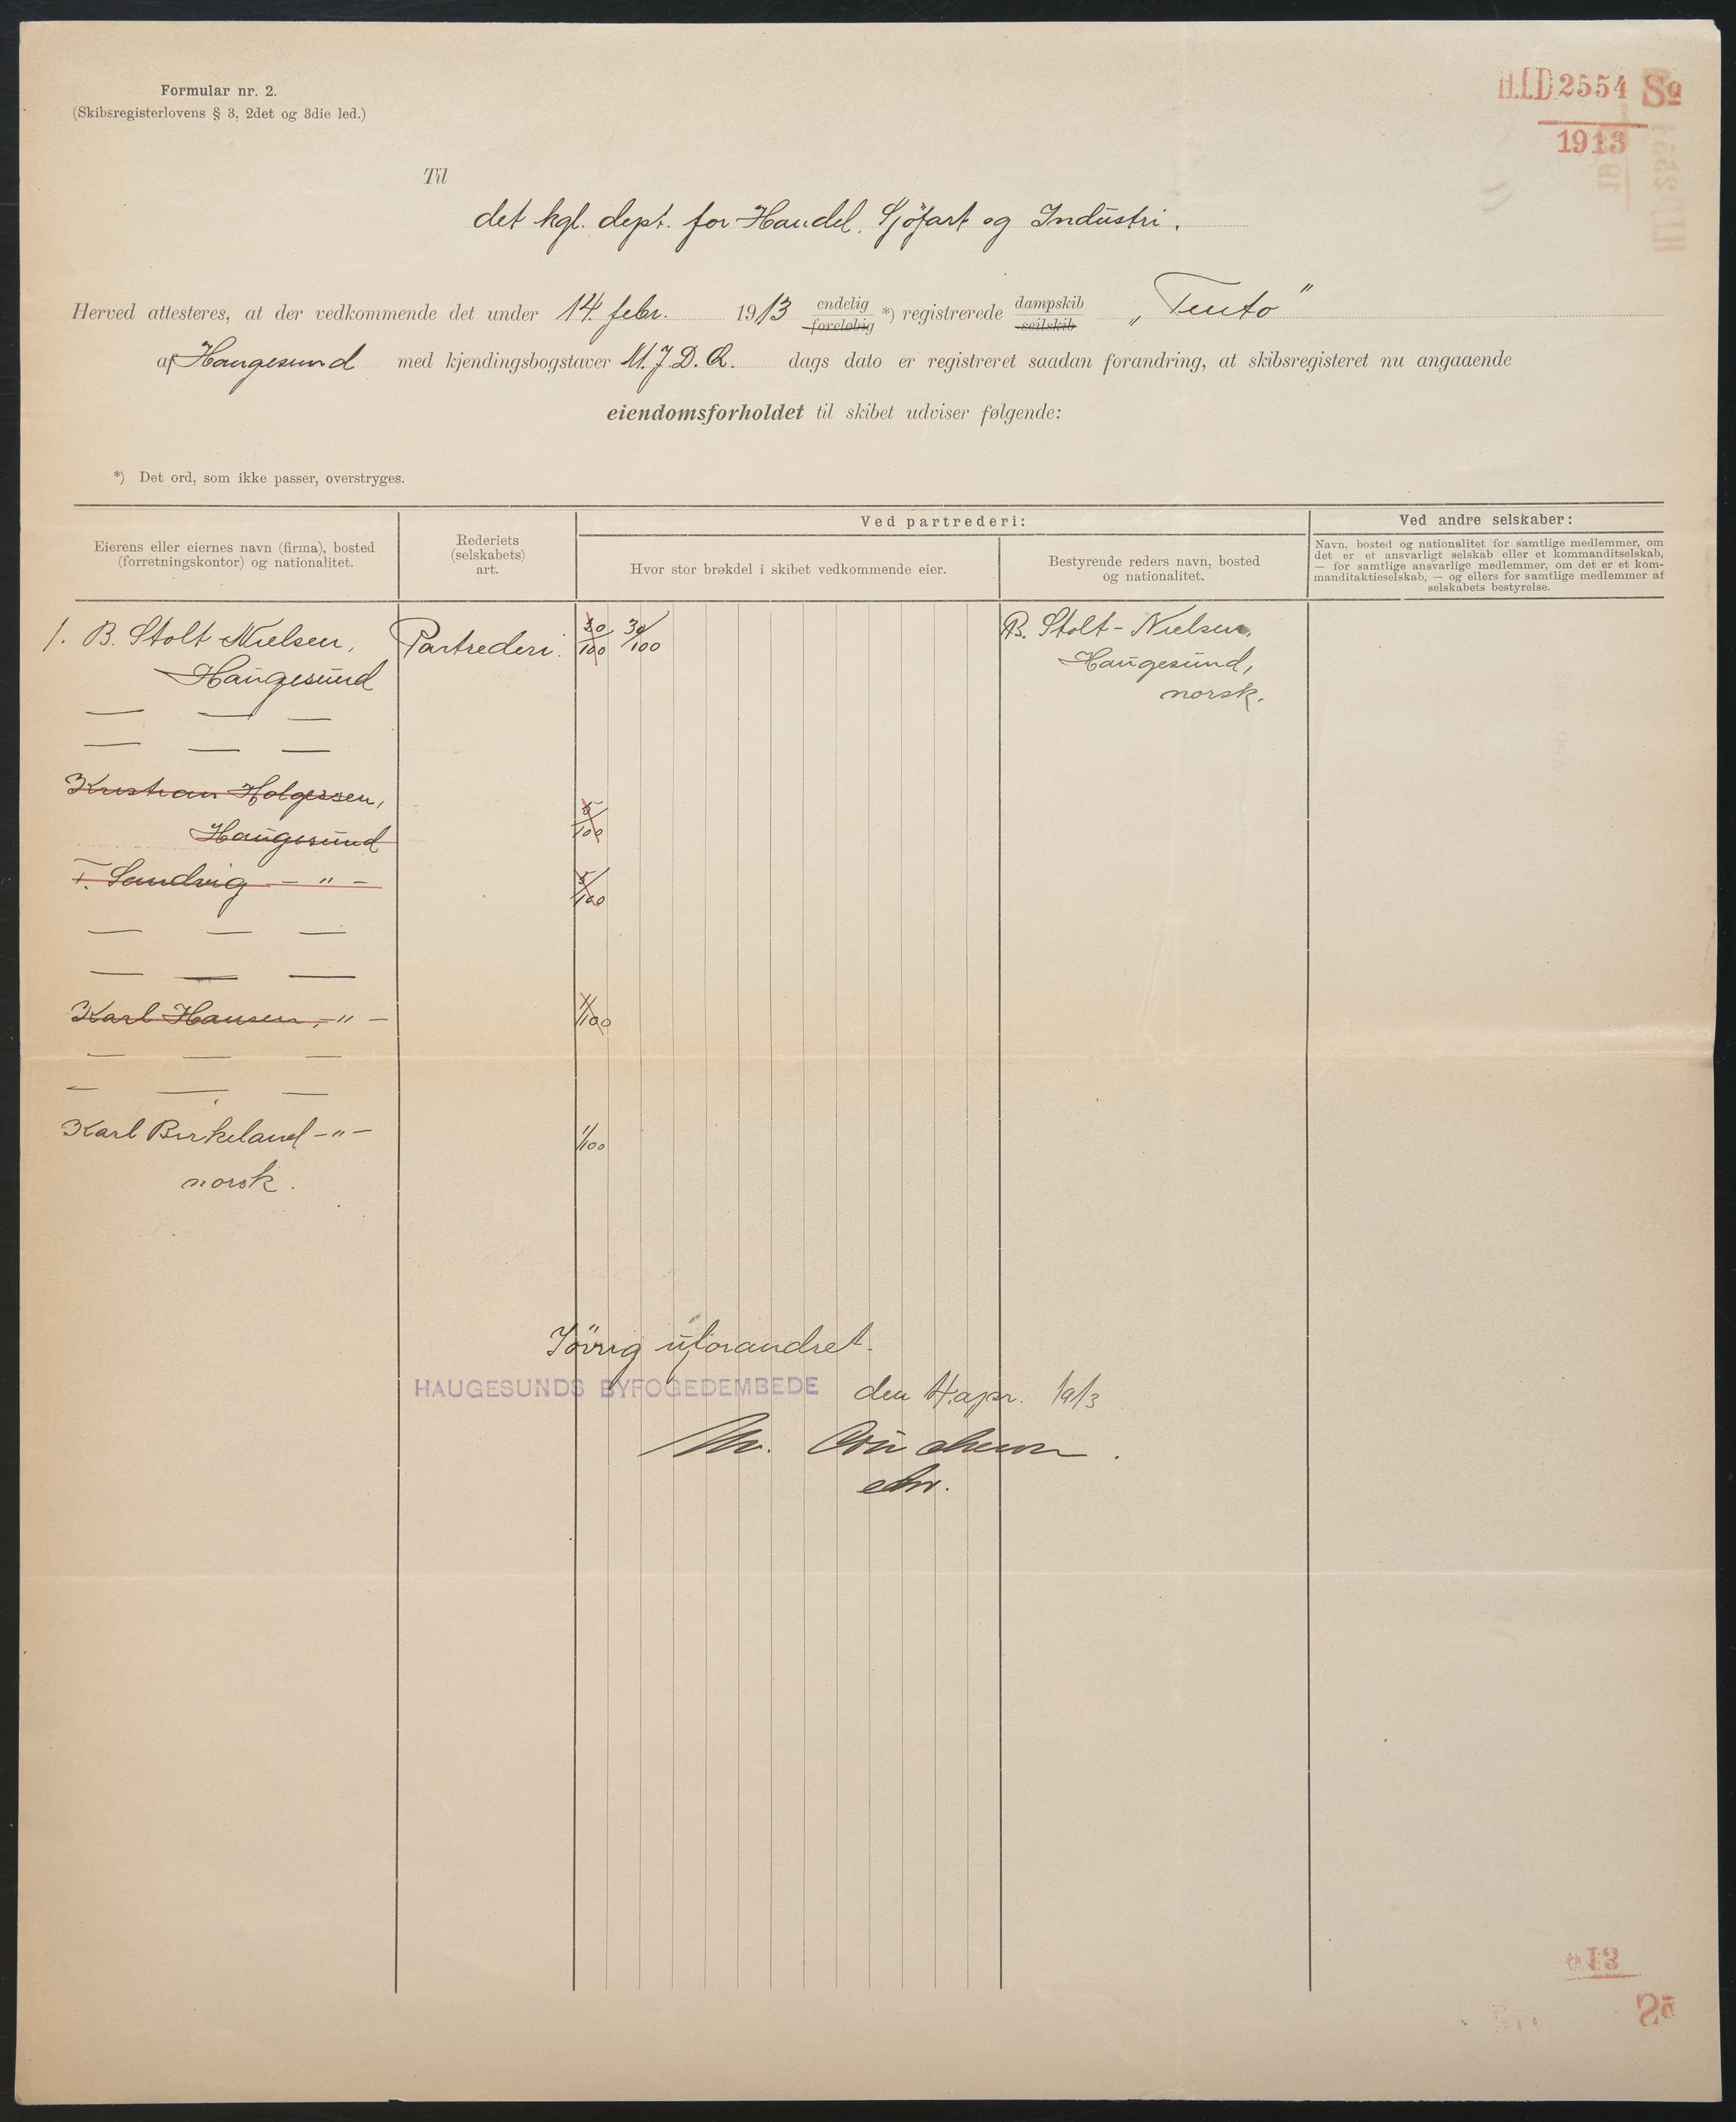 Formular nr. 2.
(Skibsregisterlovens § 3, 2det og 3die led.)
H.I.D 2554 Sø
1913
Til
det kgl. dept. for Handel, Sjöfart og Industri.
Herved attesteres, at der vedkommende det under 14. febr. 1913 endelig foreløbig *) registrerede dampskib seilskib „Tento"
af Haugesund med kjendingsbogstaver M.J.D.Q. dags dato er registreret saadan forandring, at skibsregisteret nu angaaende
eiendomsforholdet til skibet udviser følgende:
*) Det ord, som ikke passer, overstryges.
Eierens eller eiernes navn (firma), bosted
(forretningskontor) og nationalitet.
Rederiets
(selskabets)
art.
Ved partrederi:
Hvor stor brøkdel i skibet vedkommende eier.
Bestyrende reders navn, bosted
og nationalitet.
Ved andre selskaber:
Navn, bosted og nationalitet for samtlige medlemmer, om
det er et ansvarligt selskab eller et kommanditselskab,
— for samtlige ansvarlige medlemmer, om det er et kom-
manditaktieselskab, — og ellers for samtlige medlemmer af
selskabets bestyrelse.
1. B. Stolt Nielsen, Partrederi. 100 30/100 B. Stolt-Nielsen,
Haugesund Haugesund,
norsk.
— — —
— — —
Kristian Holgersen,
Haugesund 5/100
T. Sandvig — " — 5/100
— — —
— — —
Karl Hansen, — " — 1/100
— — —
— — —
Karl Birkeland — " — 1/100
norsk.
Iövrig uforandret.
HAUGESUNDS BYFOGEDEMBEDE den 4. apr. 1913